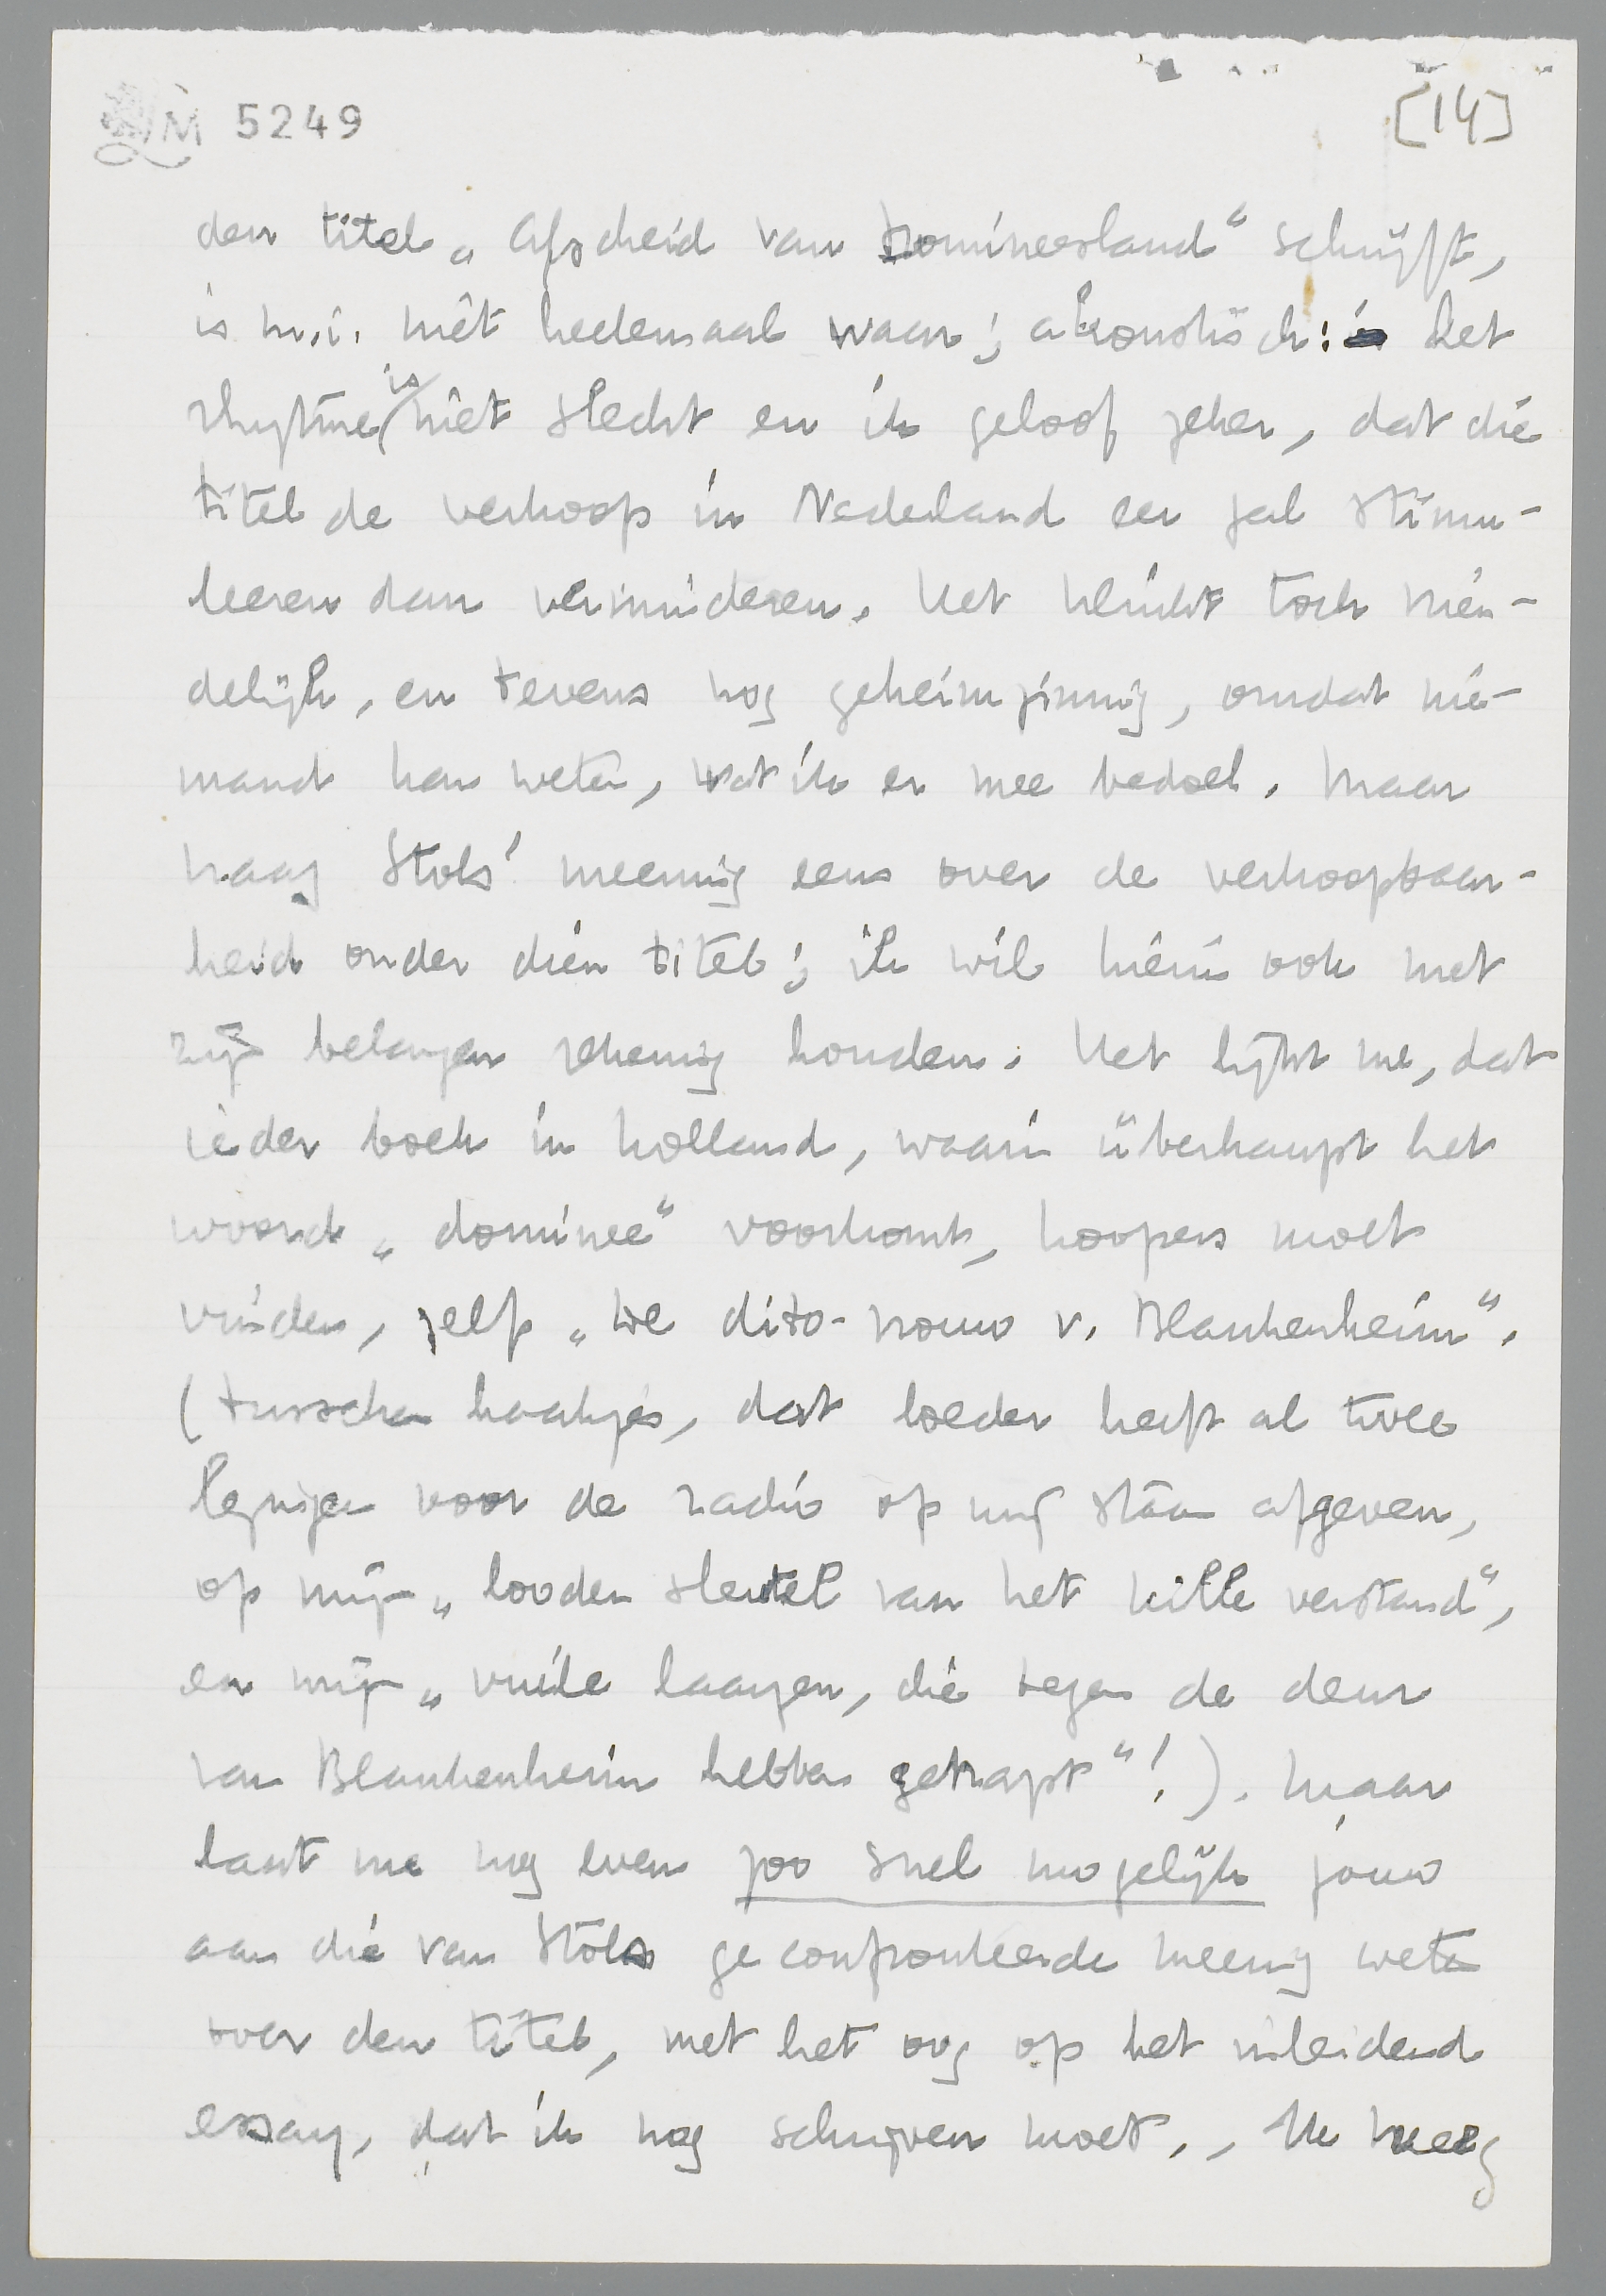 M 5249
[14]
den titel „Afscheid van Domineesland" schrijft,
is m.i. niet heelemaal waar; akoustisch: het
rhytme is niet slecht en ik geloof zeker, dat die
titel de verkoop in Nederland eer zal stimu-
leeren dan verminderen. Het klinkt toch vrien-
delijk, en tevens nog geheimzinnig, omdat nie-
mand kan weten, wat ik er mee bedoel. Maar
vraag Stols' meening eens over de verkoopbaar-
heid onder dien titel; ik wil hierin ook met
zijn belangen rekening houden. Het lijkt me, dat
ieder boek in Holland, waarin überhaupt het
woord „dominee" voorkomt, koopers moet
vinden, zelfs „De dito-vrouw v. Blankenheim".
(tusschen haakjes, dat loeder heeft al twee
lezingen voor de radio op mij staan afgeven,
op mijn „looden sleutel van het kille verstand",
en mijn „vuile laarzen, die tegen de deur
van Blankenheim hebben getrapt"!). Maar
laat me nog even zoo snel mogelijk jouw
aan die van Stols geconfronteerde meening weten
over den titel, met het oog op het inleidend
essay, dat ik nog schrijven moet. - Ik kreeg